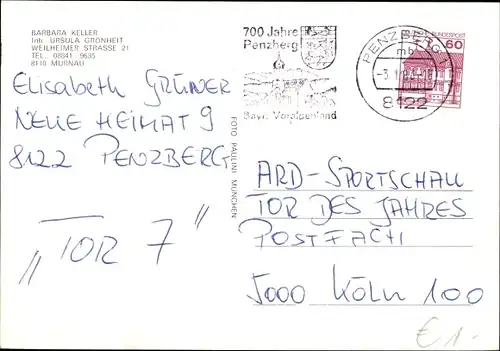 BARBARA KELLER
Inh. URSULA GRONHEIT
WEILHEIMER STRASSE 21
TEL. 08841 9635
8110 MURNAU
Elisabeth GRÜNER
NEUE HEIMAT 9
8122 PENZBERG
„TOR 7"
FOTO PAULINI MÜNCHEN
700 Jahre
Penzberg
Bayr. Voralpenland
PENZBERG 1
mb
8122
60
ARD-SPORTSCHAU
TOR DES JAHRES
POSTFACH
5000 KÖLN 100
€ 1.-